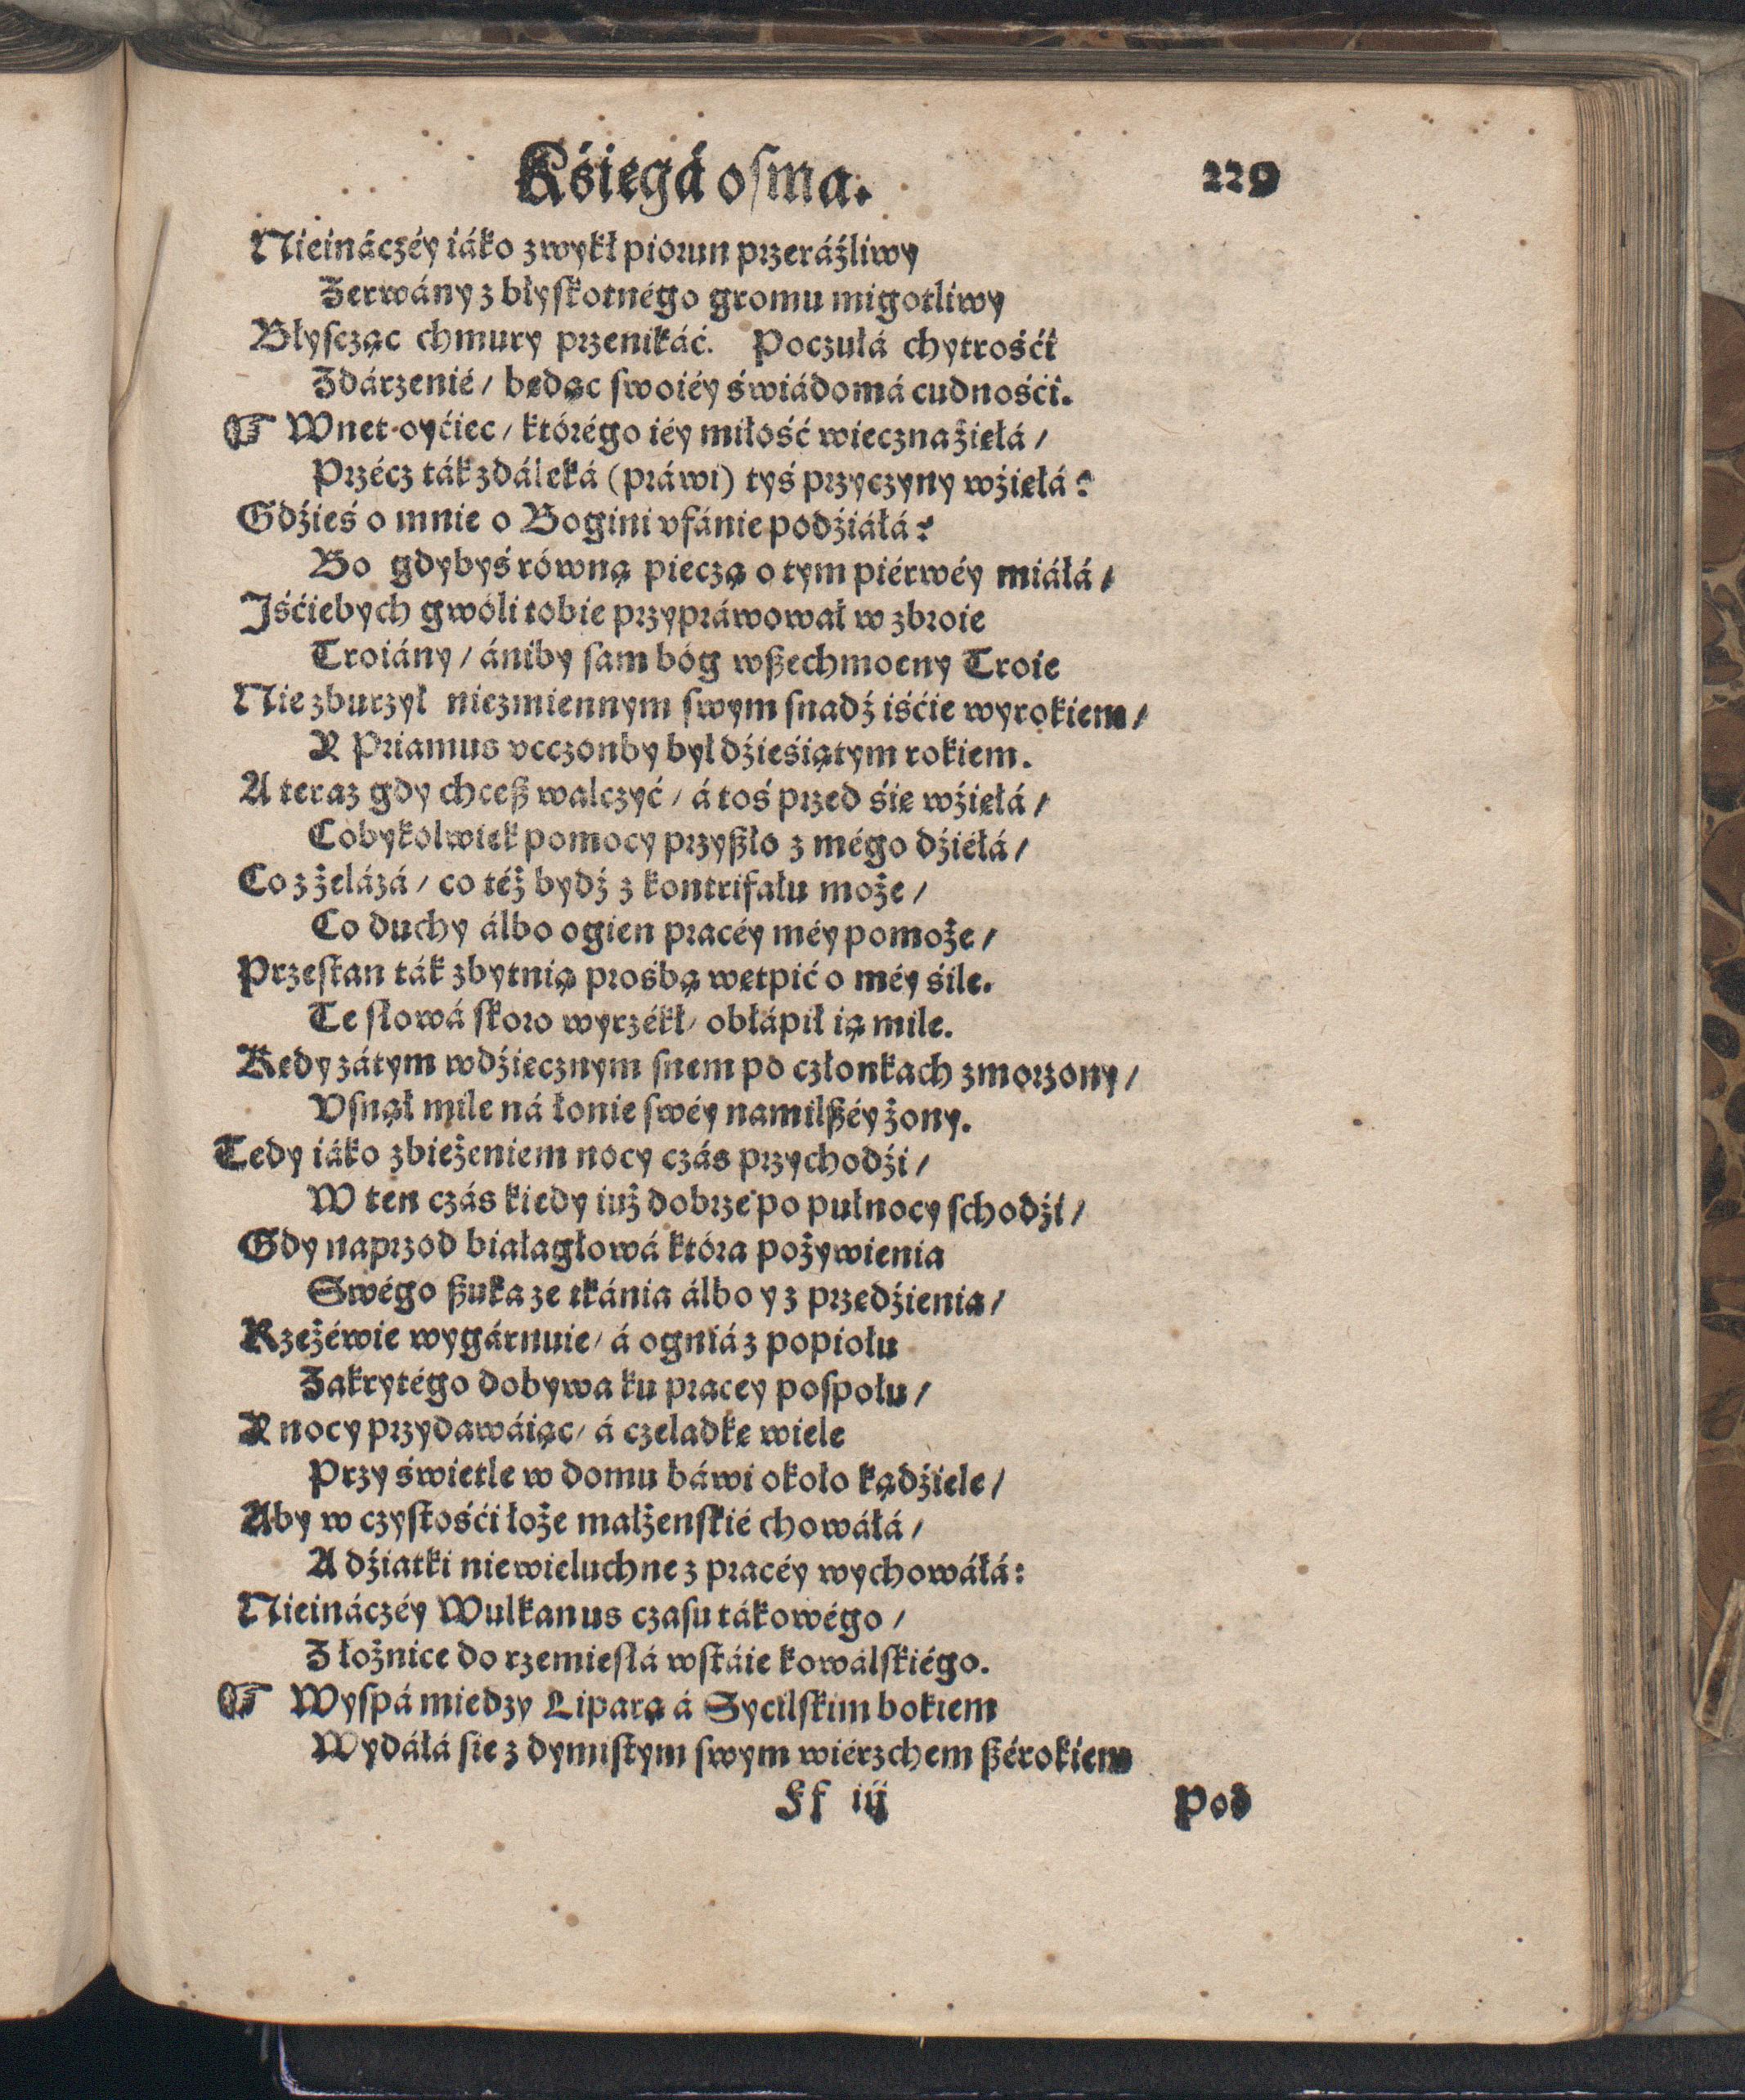 Kśięgá osma. 229
Nieináczéy iáko zwykł piorun przeráźliwy
Zerwány z błyskotnégo gromu migotliwy
Błyscząc chmury przenikáć. Poczułá chytrośći
Zdárzenié / będąc swoiéy świádomá cudnośći.
☞ Wnet oyćiec / którégo iéy miłość wieczna źięłá /
Przécz ták zdáleká (práwi) tyś przyczyny wźięłá?
Gdźieś o mnie o Bogini vfánie podźiáłá?
Bo gdybyś równą pieczą o tym piérwéy miáłá /
Iśćiebych gwóli tobie przypráwował w zbroie
Troiány / ániby sam bóg wßechmocny Troie
Nie zburzył niezmiennym swym snadź iśćie wyrokiem /
Y Priamus vcczonby był dźieśiątym rokiem.
A teraz gdy chceß walczyć / á toś przed śię wźięłá /
Cobykolwiek pomocy przyßło z mégo dźiéłá /
Co z żelázá / co téż bydź z kontrifału może /
Co duchy álbo ogien pracéy méy pomoże /
Przestan ták zbytnią prośbą wętpić o méy śile.
Te słowá skoro wyrzékł / obłápił ią mile.
Kędy zátym wdźięcznym snem po członkach zmorzony /
Vsnął mile ná łonie swéy namilßéy żony.
Tedy iáko zbieżeniem nocy czás przychodźi /
W ten czás kiedy iuż dobrze po pułnocy schodźi /
Gdy naprzod białagłowá która pożywienia
Swégo ßuka ze tkánia álbo y z przędźienia /
Rzeżéwie wygárnuie / á ogniá z popiołu
Zakrytégo dobywa ku pracey pospołu /
Y nocy przydawáiąc / á czeladkę wiele
Przy świetle w domu báwi około kądźiele /
Aby w czystośći łoże małżenskié chowáłá /
A dźiatki niewieluchne z pracéy wychowáłá:
Nieináczéy Wulkanus czasu tákowégo /
Z łożnice do rzemięsłá wstáie kowálskiégo.
☞ Wyspá miedzy Liparą á Sycilskim bokiem
Wydáłá się z dymistym swym wiérzchem ßérokiem
Ff iij Pod